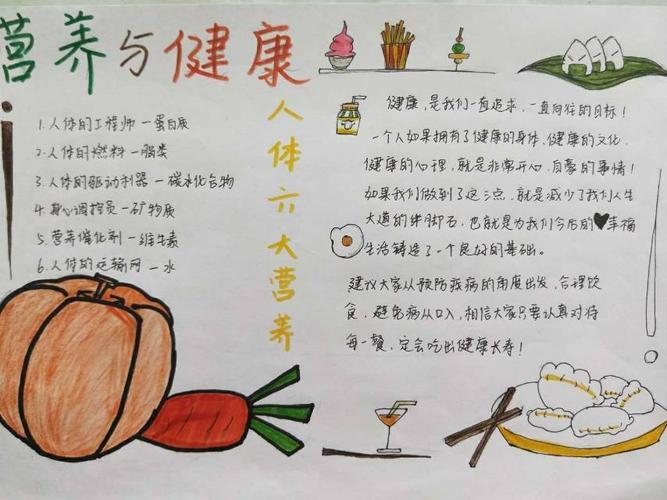 营养与健康
人体六大营养
1.人体的工程师—蛋白质
2.人体的燃料—脂类
3.人体的驱动利器—碳水化合物
4.身心调控员—矿物质
5.营养催化剂—维生素
6.人体的运输网—水
健康,是我们一直追求、一直向往的目标!
一个人如果拥有了健康的身体、健康的文化、
健康的心理,就是非常开心、自豪的事情!
如果我们做到了这三点,就是减少了我们人生
大道的绊脚石,也就是为我们今后的幸福
生活铸造了一个良好的基础。
建议大家从预防疾病的角度出发,合理饮
食,避免病从口入,相信大家只要认真对待
每一餐,定会吃出健康长寿!